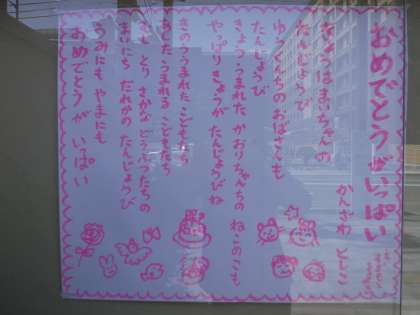 おめでとうがいっぱい
かんざわ としこ
きょうは まいちゃんの
たんじょうび
ゆうびんやのおばさんも
たんじょうび
きょう うまれた かおりちゃんちの ねこのこも
やっぱり きょうが たんじょうびね
きのう うまれた こどもたち
あした うまれる こどもたち
とり さかな どうぶつたちの
まいにち だれかの たんじょうび
うみにも やまにも
おめでとうが いっぱい